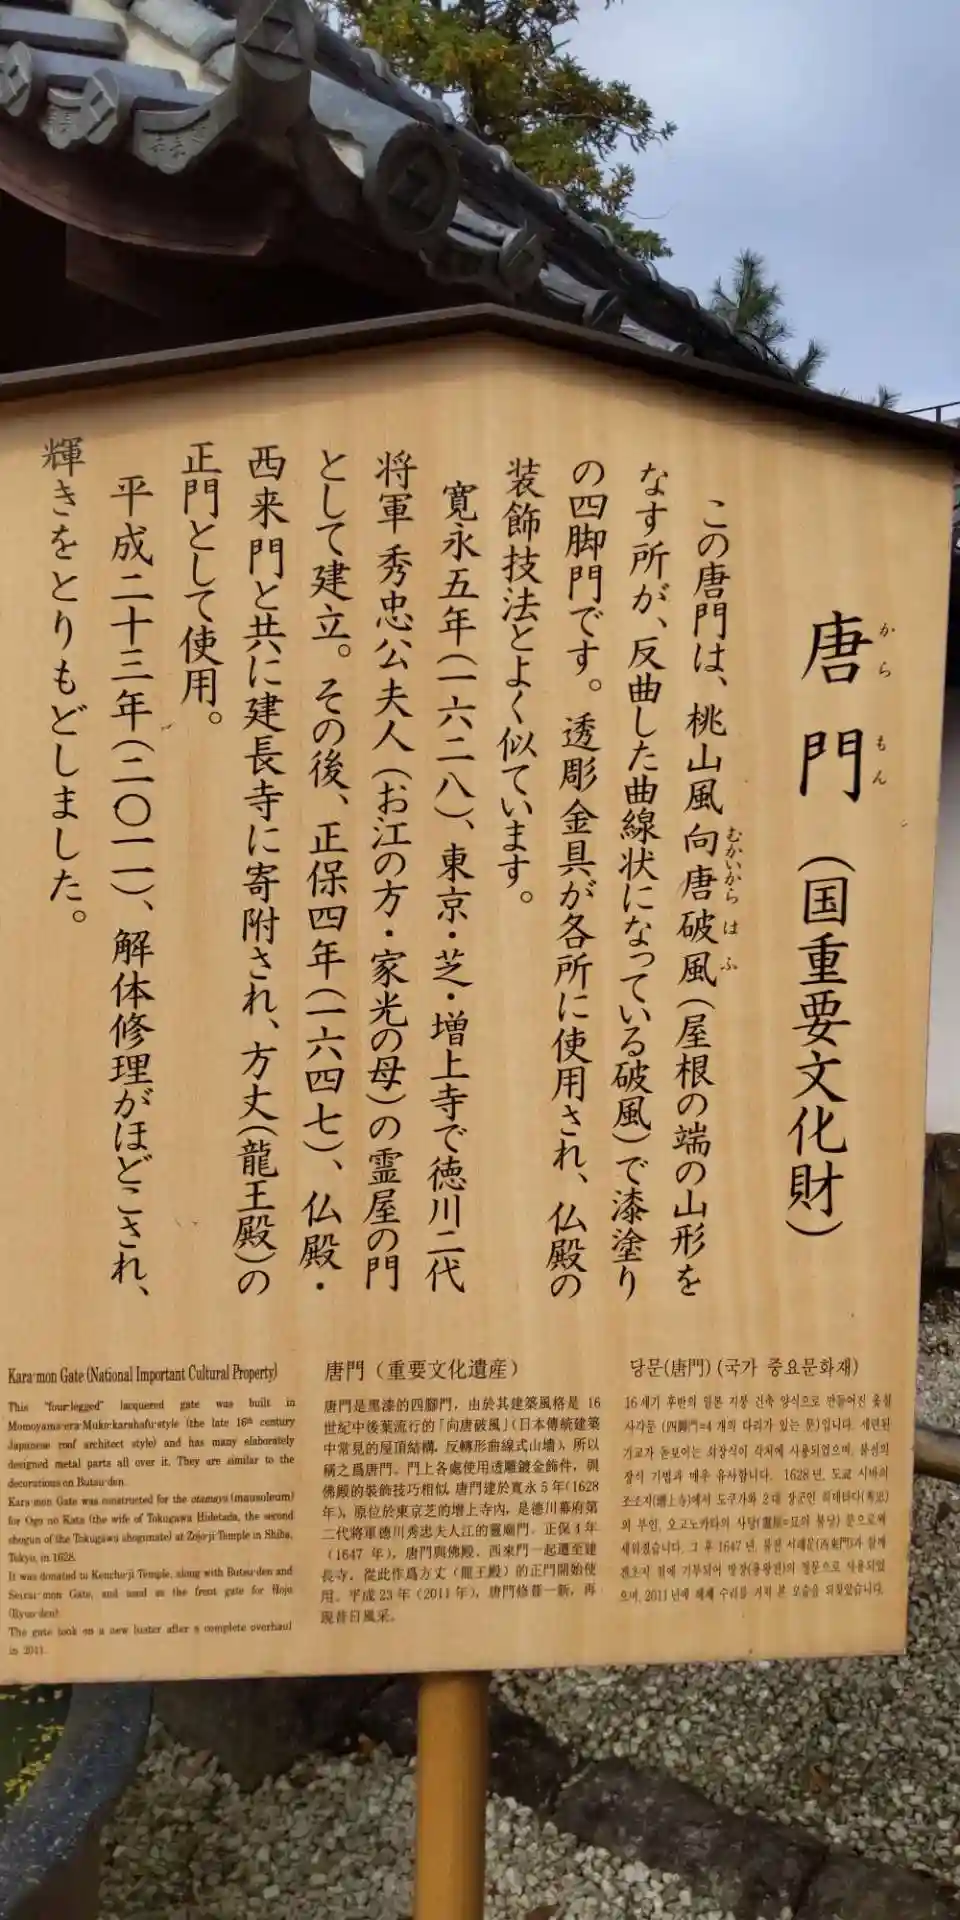 唐門（国重要文化財）
からもん
この唐門は、桃山風向唐破風（屋根の端の山形を
むかいからはふ
なす所が、反曲した曲線状になっている破風）で漆塗り
の四脚門です。透彫金具が各所に使用され、仏殿の
装飾技法とよく似ています。
寛永五年（一六二八）、東京・芝・増上寺で徳川二代
将軍秀忠公夫人（お江の方・家光の母）の霊屋の門
として建立。その後、正保四年（一六四七）、仏殿・
西来門と共に建長寺に寄附され、方丈（龍王殿）の
正門として使用。
平成二十三年（二〇一一）、解体修理がほどこされ、
輝きをとりもどしました。
Kara-mon Gate (National Important Cultural Property)
This "four-legged" lacquered gate was built in
Momoyama-era-Muko-karahafu-style (the late 16th century
Japanese roof architect style) and has many elaborately
designed metal parts all over it. They are similar to the
decorations on Butsu-den.
Kara-mon Gate was constructed for the otamaya (mausoleum)
for Ogo no Kata (the wife of Tokugawa Hidetada, the second
shogun of the Tokugawa shogunate) at Zojo-ji Temple in Shiba,
Tokyo, in 1628.
It was donated to Kencho-ji Temple, along with Butsu-den and
Sairai-mon Gate, and used as the front gate for Hojo
(Ryuo-den).
The gate took on a new luster after a complete overhaul
in 2011.
唐門（重要文化遺産）
唐門是黑漆的四腳門，由於其建築風格是 16
世紀中後葉流行的「向唐破風」（日本傳統建築
中常見的屋頂結構，反轉形曲線式山墻），所以
稱之爲唐門。門上各處使用透雕鍍金飾件，與
佛殿的裝飾技巧相似。唐門建於寬永 5 年（1628
年），原位於東京芝的增上寺內，是德川幕府第
二代將軍德川秀忠夫人江的靈廟門。正保 4 年
（1647 年），唐門與佛殿、西來門一起遷至建
長寺，從此作爲方丈（龍王殿）的正門開始使
用。平成 23 年（2011 年），唐門修葺一新，再
現昔日風采。
당문(唐門) (국가 중요문화재)
16세기 후반의 일본 지붕 건축 양식으로 만들어진 옻칠
사각문 (四脚門=4 개의 다리가 있는 문)입니다. 세련된
기교가 돋보이는 쇠장식이 각처에 사용되었으며, 불전의
장식 기법과 매우 유사합니다. 1628 년, 도쿄 시바의
조조지(增上寺)에서 도쿠가와 2 대 장군인 히데타다(秀忠)
의 부인, 오고노카타의 사당 문으로써
세워졌습니다. 그 후 1647 년, 불전 서래문(西来門)과 함께
겐초지 절에 기부되어 방장(용왕전)의 정문으로 사용되었
으며, 2011 년에 해체 수리를 거쳐 본 모습을 되찾았습니다.